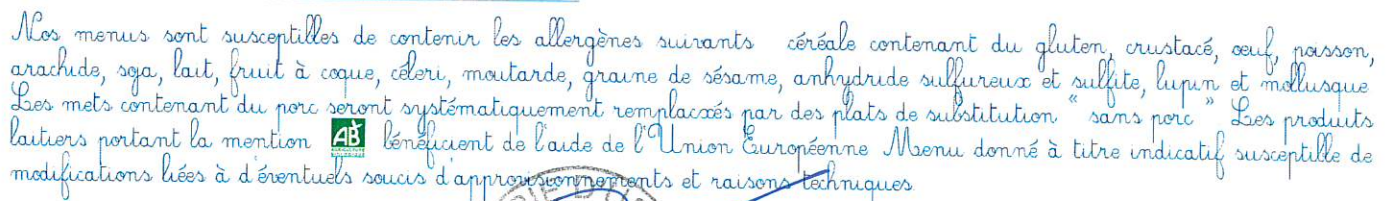 Nos menus sont susceptibles de contenir les allergènes suivants céréale contenant du gluten, crustacé, œuf, poisson,
arachide, soja, lait, fruit à coque, céleri, moutarde, graine de sésame, anhydride sulfureux et sulfite, lupin et mollusque
Les mets contenant du porc seront systématiquement remplacés par des plats de substitution " sans porc " Les produits
laitiers portant la mention AB AGRICULTURE BIOLOGIQUE bénéficient de l'aide de l'Union Européenne Menu donné à titre indicatif susceptible de
modifications liées à d'éventuels soucis d'approvisionnements et raisons techniques